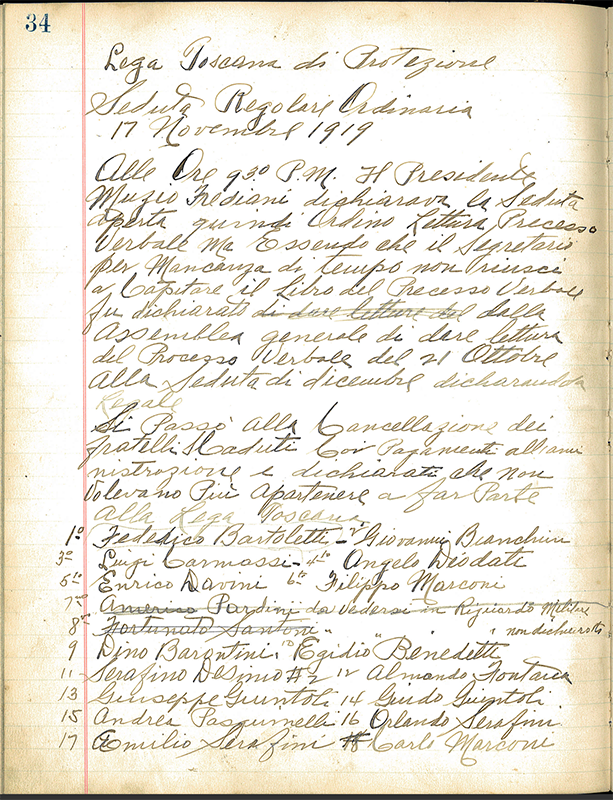 34
Lega Toscana di Protezione
Seduta Regolare Ordinaria
17 Novembre 1919
Alle Ore 930 P.M. Il Presidente
Muzio Frediani dichiarava la Seduta
aperta quindi Ordino Lettura Precesso
Verbale Ma Essendo che il Segretario
per Mancanza di tempo non riusci
a Capitare il Libro del Precesso Verbale
fu dichiarato di dare letture del dalla
Assemblea generale di dare lettura
del Processo Verbale del 21 Ottobre
alla Seduta di dicembre dicharandola
Regale
Si Passò alla Cancellazione dei
fratelli Scaduti Coi Pagamenti all'ami
nistrazione e dichiarati che non
Volevano Più apartenere a far Parte
Alla Lega Toscana
1º Federico Bartoletti - 2º Giovanni Bianchini
3º Luigi Carmassi - 4to Angelo Deodati
5to Enrico Davini 6to Filippo Marconi
7mo Americo Pardini da Vedersi in Riguardo Militare
8vo Fortunato Santoni " " " non dichiarato
9 Dino Barontini 10 Egidio Benedetti
11 Serafino Desimio #2 12 Almondo Fontana
13 Giuseppe Giuntoli 14 Guido Giuntoli
15 Andrea Pasquinelli 16 Orlando Serafini
17 Emilio Serafini 18 Carlo Marconi